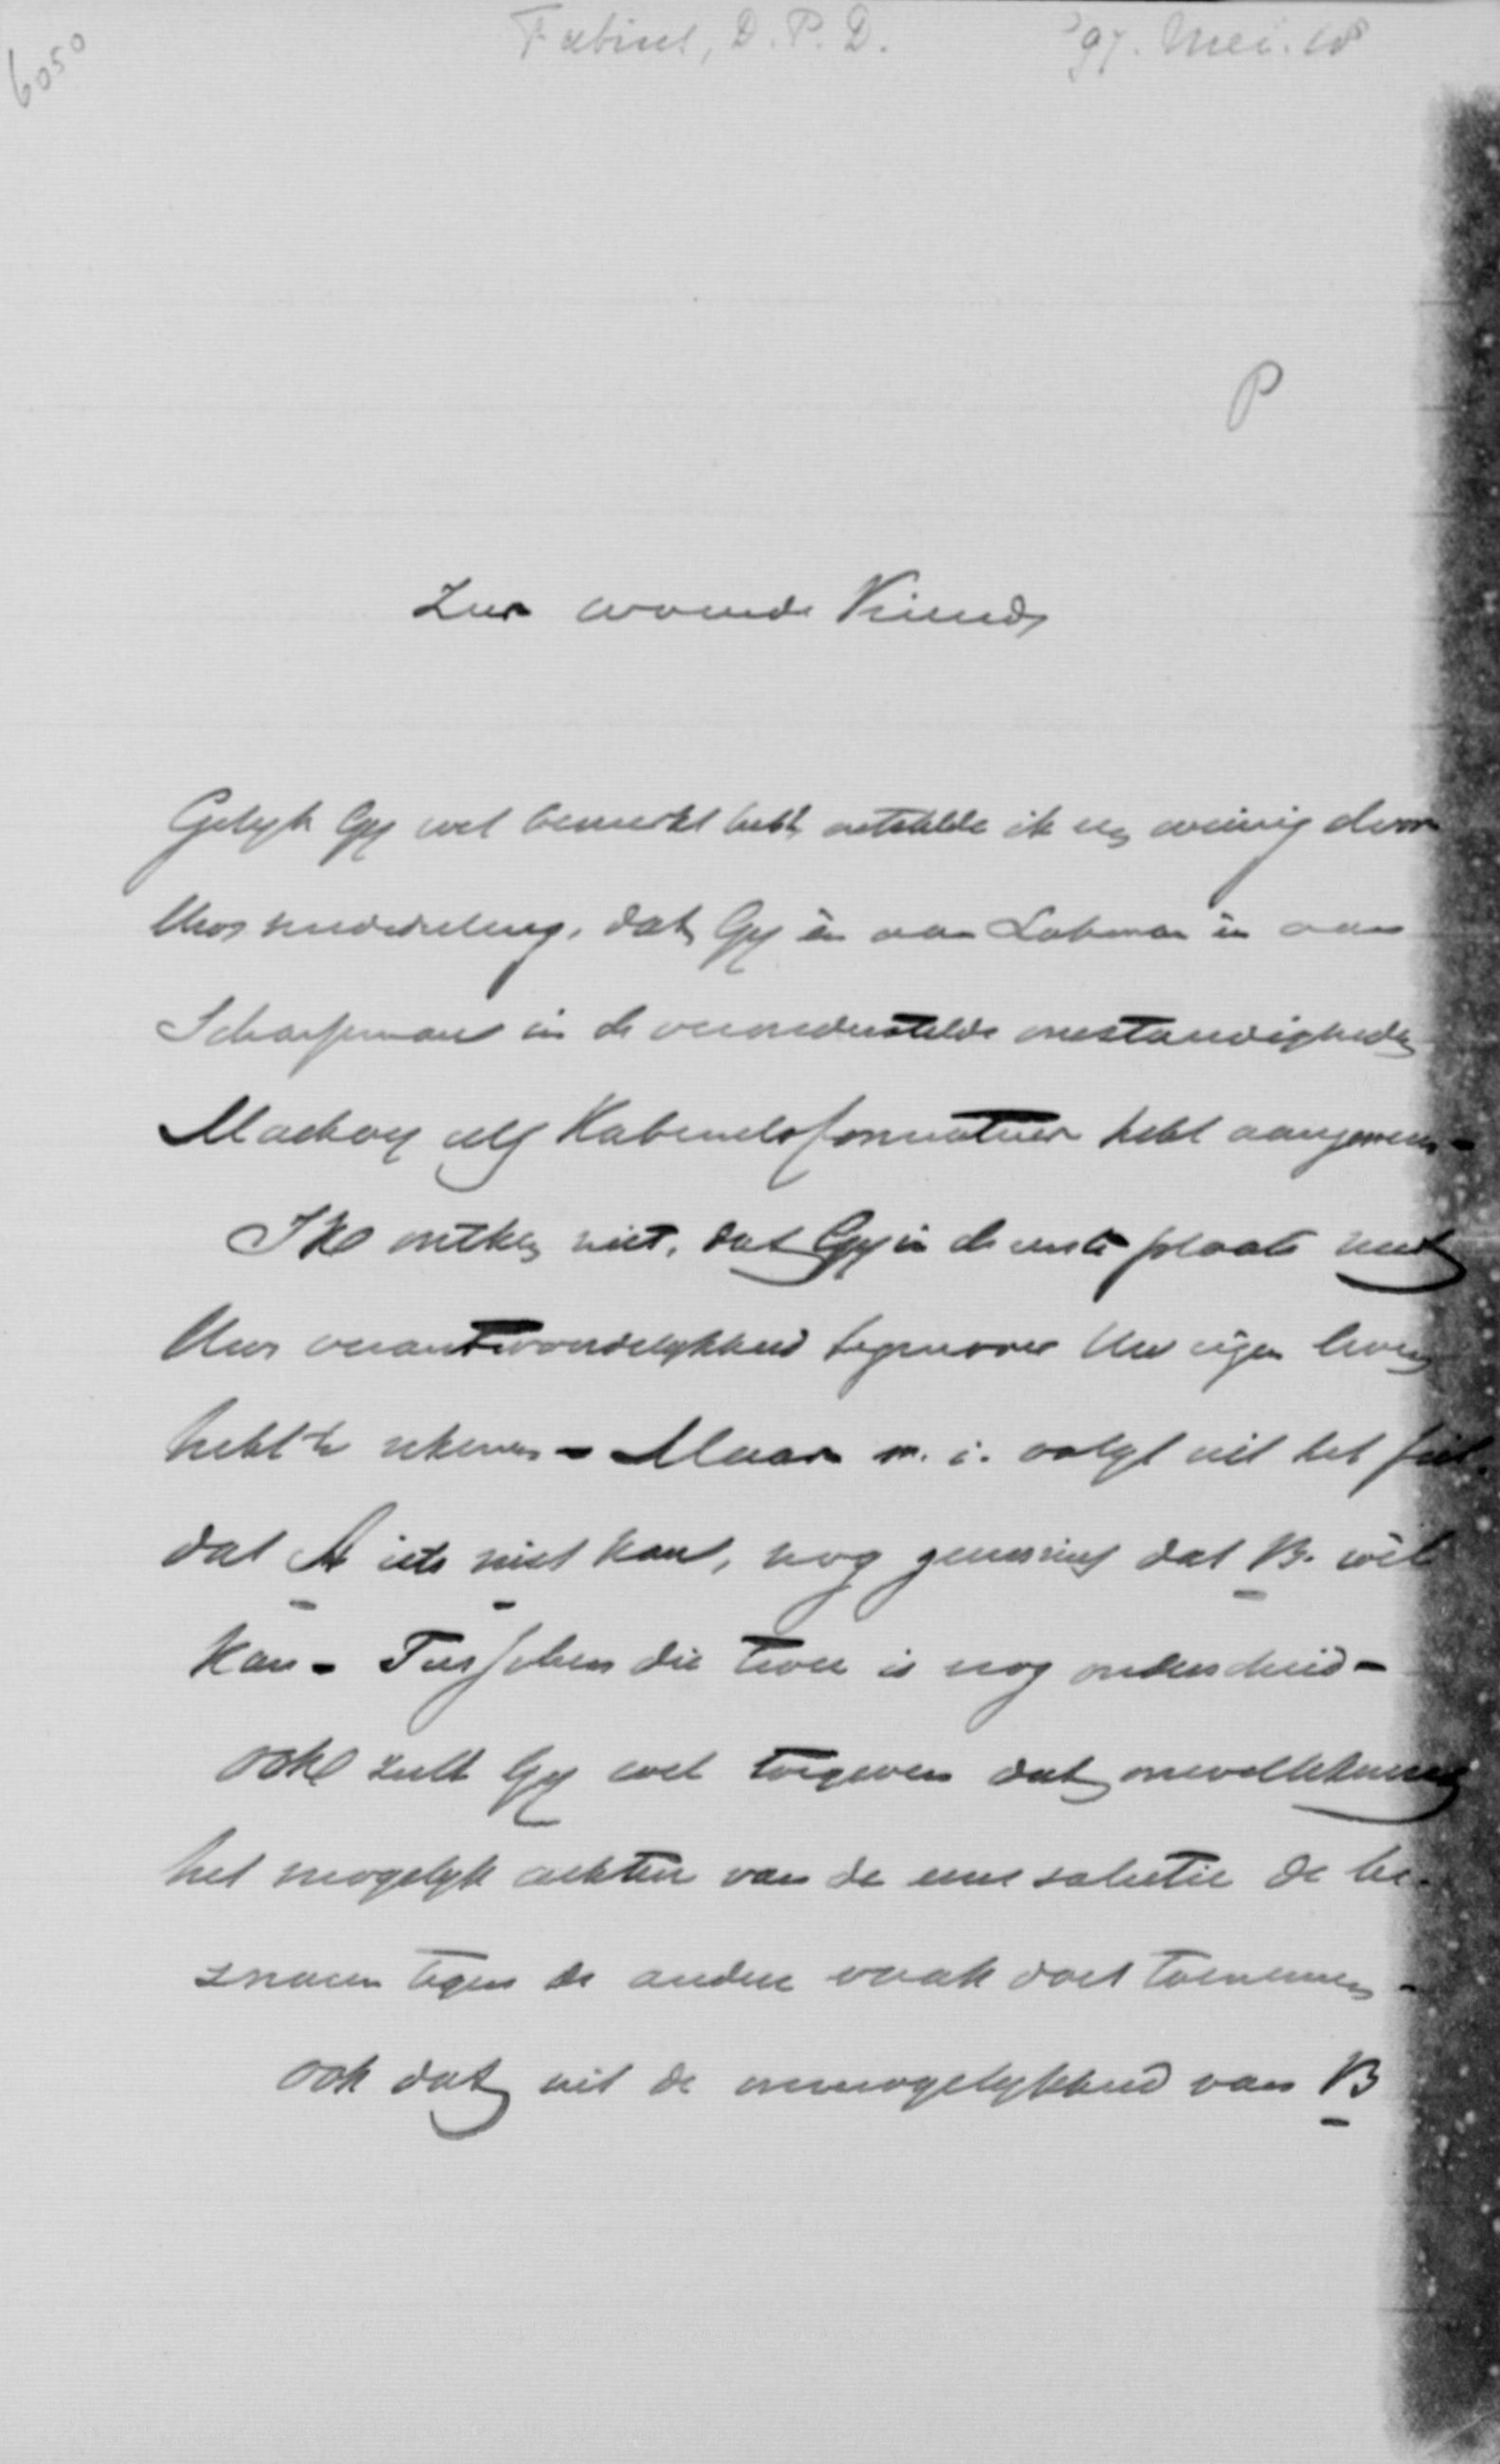 6050
Fabius, D. P. D. '97. Mei. 18
P
Zeer waarde Vriend,
Gelyk Gy wel bemerkt hebt, ontstelde ik niet weinig door
Uwe mededeeling, dat Gy èn aan Lohman èn aan
Schaepman in de veronderstelde omstandigheden
Mackay als Kabinetsformateur hebt aangewezen -
Ik ontken niet, dat Gy in de eerste plaats met
Uwe verantwoordelykheid tegenover Uw eigen leven
hebt te rekenen - Maar m. i. volgt uit het feit,
dat A iets niet kan, nog geenszins dat B. wèl
kan - Tusschen die twee is nog onderscheid -
ook zult Gy wel toegeven dat onwillekeurig
het mogelyk achten van de eene solutie de be-
zwaren tegen de andere vaak doet toenemen -
ook dat uit de onmogelykheid van B